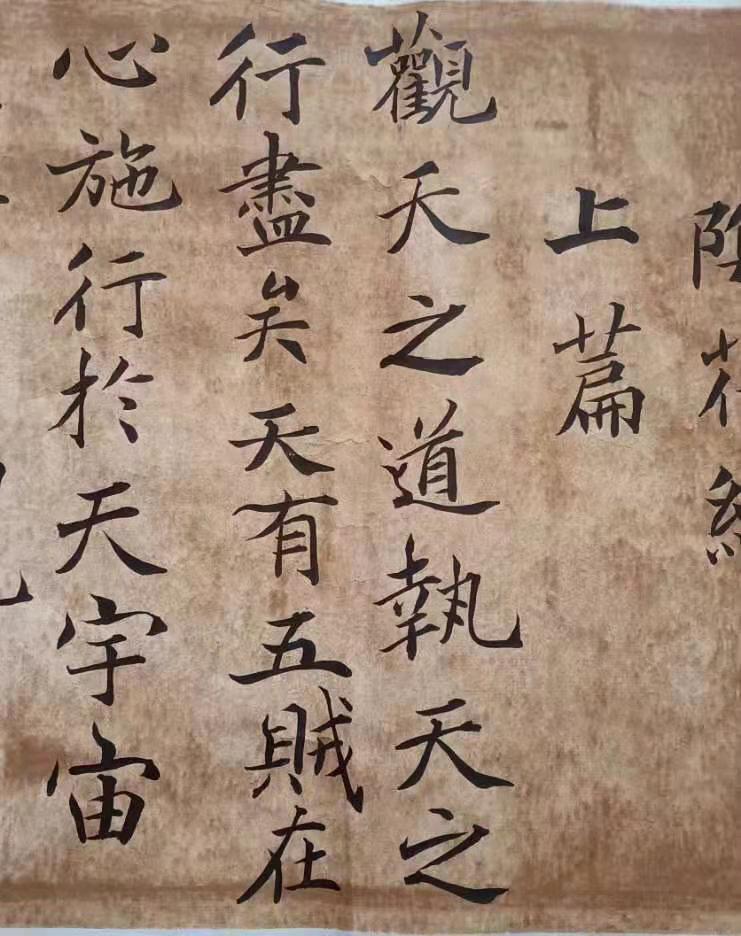 陰符經
上篇
觀天之道執天之
行盡矣天有五賊在
心施行於天宇宙